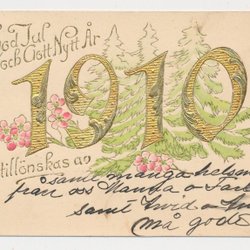 God Jul
och Gott Nytt År
1910
tillönskas av
samt många helsn
från oss Mamma o
samt
må gode